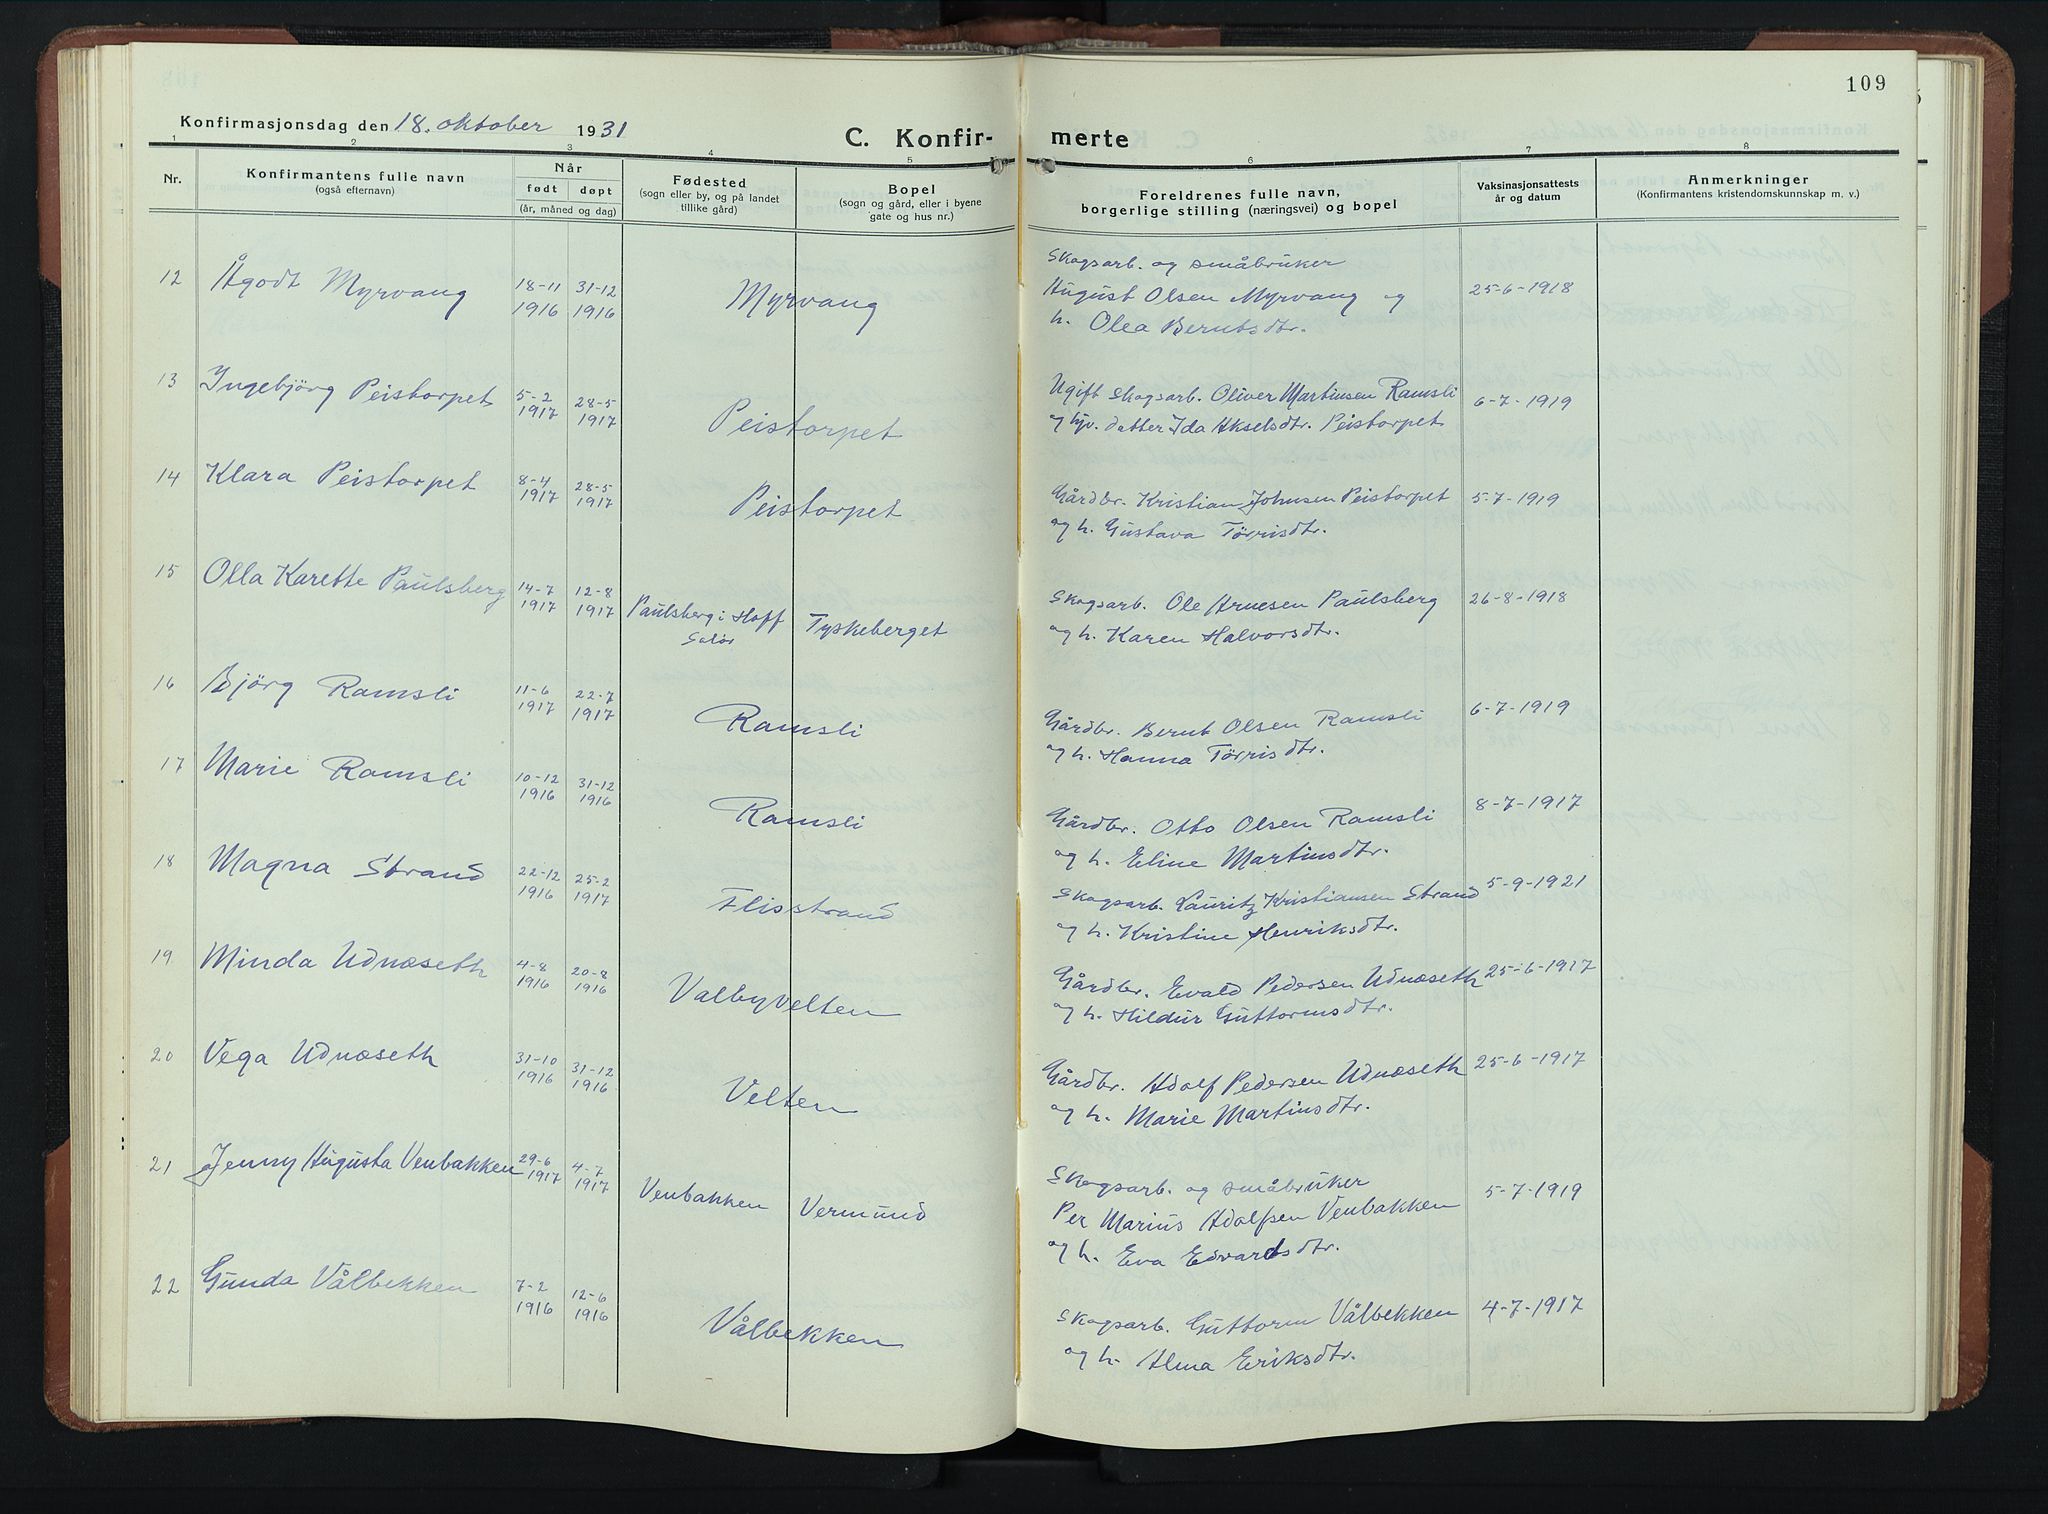 109
Konfirmasjonsdag den 18. oktober 1931
C. Konfir- merte
1 2 3 4 5 6 7 8
Nr.
Konfirmantens fulle navn
(også efternavn)
Når
født døpt
(år, måned og dag)
Fødested
(sogn eller by, og på landet
tillike gård)
Bopel
(sogn og gård, eller i byene
gate og hus nr.)
Foreldrenes fulle navn,
borgerlige stilling (næringsvei) og bopel
Vaksinasjonsattests
år og datum
Anmerkninger
(Konfirmantens kristendomskunnskap m. v.)
12 Ågodt Myrvang 18-11 1916 31-12 1916 Myrvang
Skogsarb. og småbruker
August Olsen Myrvang og 25-6-1918
h. Olea Berntsdtr.
13 Ingebjörg Peistorpet 5-2 1917 28-5 1917 Peistorpet
Ugift skogsarb. Oliver Martinsen Ramsli 6-7-1919
og hjv. datter Ida Akselsdtr. Peistorpet
14 Klara Peistorpet 8-4 1917 28-5 1917 Peistorpet
Gårdbr. Kristian Johnsen Peistorpet 5-7-1919
og h. Gustava Tørrisdtr.
15 Olla Karette Paulsberg 14-7 1917 12-8 1917 Paulsberg i Hoff Solør Tyskeberget
Skogsarb. Ole Arnesen Paulsberg 26-8-1918
og h. Karen Halvorsdtr.
16 Björg Ramsli 11-6 1917 22-7 1917 Ramsli
Gårdbr. Bernt Olsen Ramsli 6-7-1919
og h. Hanna Tørrisdtr.
17 Marie Ramsli 10-12 1916 31-12 1916 Ramsli
Gårdbr. Otto Olsen Ramsli 8-7-1917
og h. Eline Martinsdtr.
18 Magna Strand 22-12 1916 25-2 1917 Flisstrand
Skogsarb. Lauritz Kristiansen Strand 5-9-1921
og h. Kristine Henriksdtr.
19 Minda Udnæseth 4-8 1916 20-8 1916 Valbyvelten
Gårdbr. Evald Pedersen Udnæseth 25-6-1917
og h. Hildur Guttormsdtr.
20 Vega Udnæseth 31-10 1916 31-12 1916 Velten
Gårdbr. Adolf Pedersen Udnæseth 25-6-1917
og h. Marie Martinsdtr.
21 Jenny Augusta Venbakken 29-6 1917 4-7 1917 Venbakken Vermund
Skogsarb. og småbruker
Per Marius Adolfsen Venbakken 5-7-1919
og h. Eva Edvardsdtr.
22 Gunda Vålbekken 7-2 1916 12-6 1916 Vålbekken
Skogsarb. Guttorm Vålbekken 4-7-1917
og h. Alma Eriksdtr.